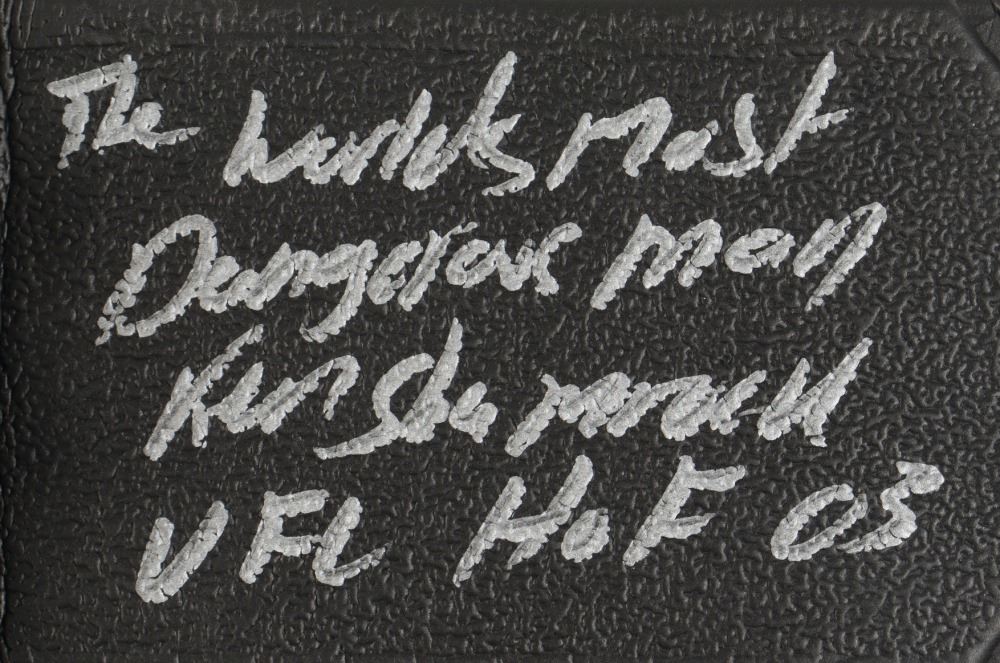 The worlds most
Dangerous man
Ken Shamrock
UFC HoF 03